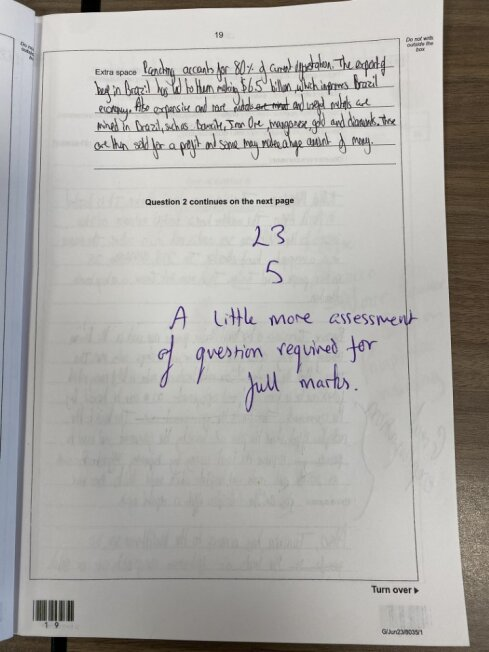 19
Do not write
outside the
box
Extra space Ranching accounts for 80% of current deforestation. The export of
beef in Brazil has led to them making $6.5 billion, which improves Brazil
economy. Also expensive and rare metals are mined and metals are
mined in Brazil, such as Bauxite, Iron Ore, manganese, gold and diamonds. These
are then sold for a profit and some may make a huge amount of money.
Question 2 continues on the next page
23
5
A little more assessment
of question required for
full marks.
Turn over ►
1 9
G/Jun23/8035/1